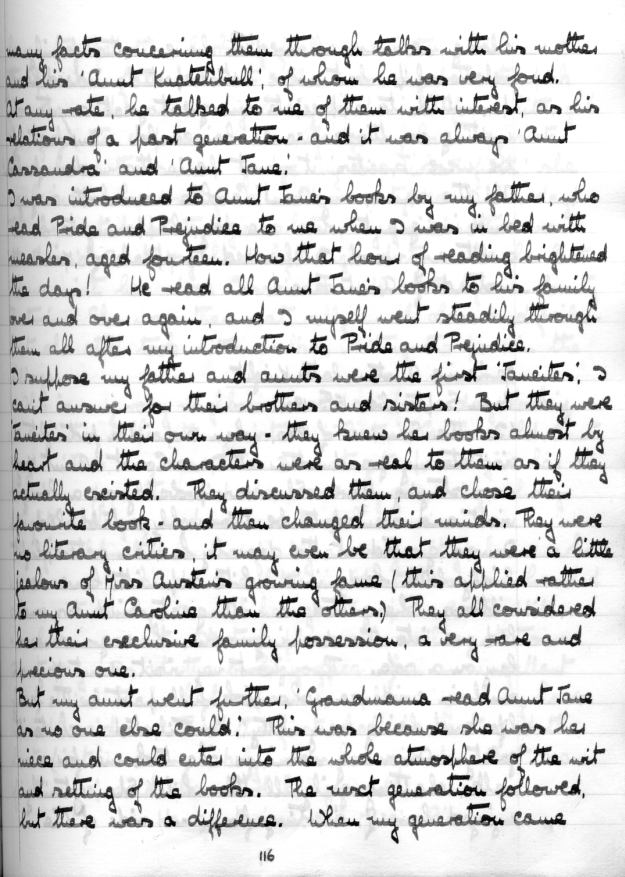 many facts concerning them through talks with his mother
and his 'Aunt Knatchbull', of whom he was very fond.
At any rate, he talked to me of them with interest, as his
relations of a past generation - and it was always 'Aunt
Cassandra' and 'Aunt Jane'.
I was introduced to Aunt Jane's books by my father, who
read Pride and Prejudice to me when I was in bed with
measles, aged fourteen. How that hour of reading brightened
the days! He read all Aunt Jane's books to his family
over and over again, and I myself went steadily through
them all after my introduction to Pride and Prejudice.
I suppose my father and aunts were the first 'Janeites', I
can't answer for their brothers and sisters! But they were
'Janeites' in their own way - they knew her books almost by
heart and the characters were as real to them as if they
actually existed. They discussed them, and chose their
favourite book - and then changed their minds. They were
no literary critics, it may even be that they were a little
jealous of Miss Austen's growing fame (this applied rather
to my Aunt Caroline than the others) They all considered
her their exclusive family possession, a very rare and
precious one.
But my aunt went further, 'Grandmama read Aunt Jane
as no one else could'. This was because she was her
niece and could enter into the whole atmosphere of the wit
and setting of the books. The next generation followed,
but there was a difference. When my generation came
116